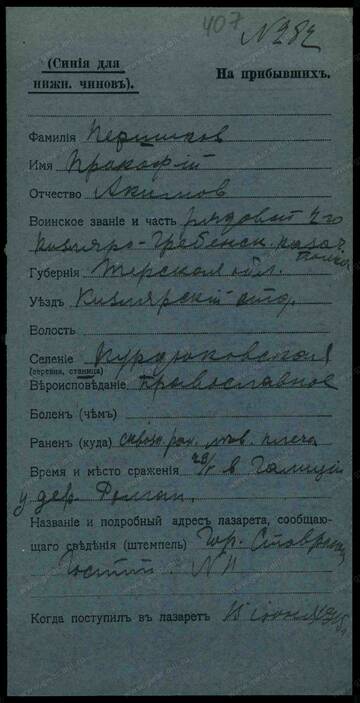 407
№282
(Синія для
нижн. чиновъ).
На прибывшихъ.
Фамилія Першиков
Имя Прокофій
Отчество Акимов
Воинское званіе и часть рядовой 2го
Кизляро-Гребенск. казач.
полка
Губернія Терская обл.
Уѣздъ Кизлярскій отд.
Волость
Селеніе Курдюковская
(деревня, станица)
Вѣроисповѣданіе православное
Боленъ (чѣмъ)
Раненъ (куда) сквозн. ран. лѣв. плеча
Время и мѣсто сраженія в Галиціи
у дер.
Названіе и подробный адресъ лазарета, сообщаю-
щаго свѣдѣнія (штемпель) Гор. Ставроп.
Госпит. №
Когда поступилъ въ лазаретъ 15 іюня